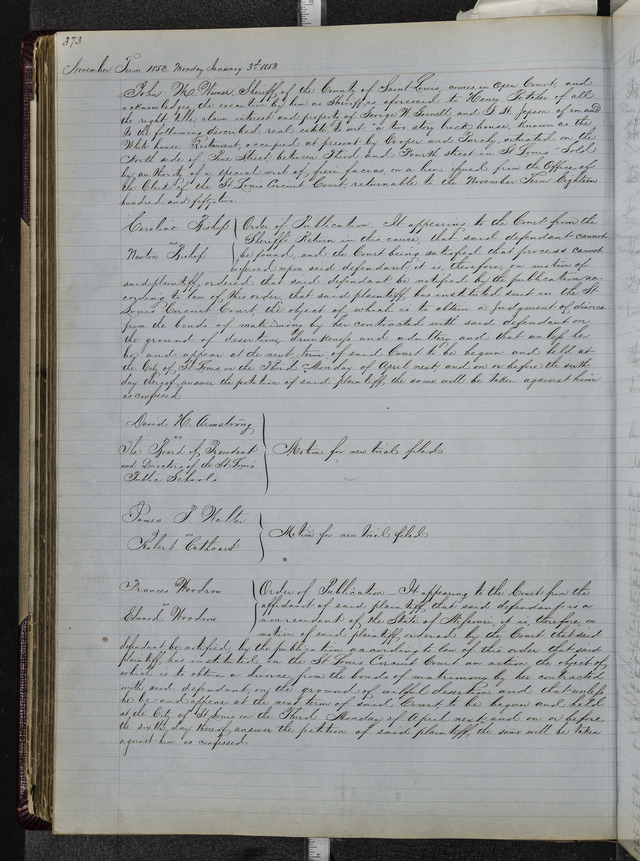 373
November Term 1852. Monday January 3d 1853
John M. Wimer, Sheriff of the County of Saint Louis, comes in open Court, and
acknowledges the execution by him as Sheriff as aforesaid to Henry of all
the right, title, claim interest and property of George W. and J. H. Jepson of in and
to the following described real estate to wit "a two story brick house, known as the
White house Restaurant, occupied at present by Cooper and situated on the
North side of Pine Street between Third and Fourth street in St Louis" Sold
by authority of a special writ of fieri facias, on a lien issued from the Office of
the Clerk of the St Louis Circuit Court, returnable to the November Term Eighteen
hundred and fifty two.
Caroline Bishop
vs
Newton Bishop
Order of Publication. It appearing to the Court from the
Sheriff's Return in this cause, that said defendant cannot
be found, and the Court being satisfied that process cannot
be served upon said defendant, it is, therefore, on motion of
said plaintiff, ordered that said defendant be notified by the publication ac-
cording to law of this order, that said plaintiff, has instituted suit in the St
Louis Circuit Court, the object of which is to obtain a judgment of divorce
from the bonds of matrimony by her contracted with said defendant on
the ground of desertion, drunkenness and adultery and that unless he
be and appear at the next term of said Court to be begun and held at
the City of St Louis on the Third Monday of April next, and on or before the sixth
day thereof, answer the petition of said plaintiff, the same will be taken against him
as confessed
David H. Armstrong
vs
The Board of President
and Directors of the St Louis
Public Schools
Motion for new trial filed
James P Walter
vs
Robert Cathcart
Motion for new trial filed
Frances Woodrow
vs
Edward Woodrow
Order of Publication It appearing to the Court from the
affidavit of said plaintiff, that said defendant is a
non resident of the State of Missouri, it is, therefore, on
motion of said plaintiff, ordered by the Court that said
defendant be notified, by the publication according to law of this order that said
plaintiff has instituted in the St Louis Circuit Court an action the object of
which is to obtain a divorce from the bonds of matrimony by her contracted
with said defendant, on the ground of wilful desertion and that unless
he be and appear at the next term of said Court to be begun and held
at the City of St Louis on the Third Monday of April next, and on or before
the sixth day thereof, answer the petition of said plaintiff, the same will be taken
against him as confessed